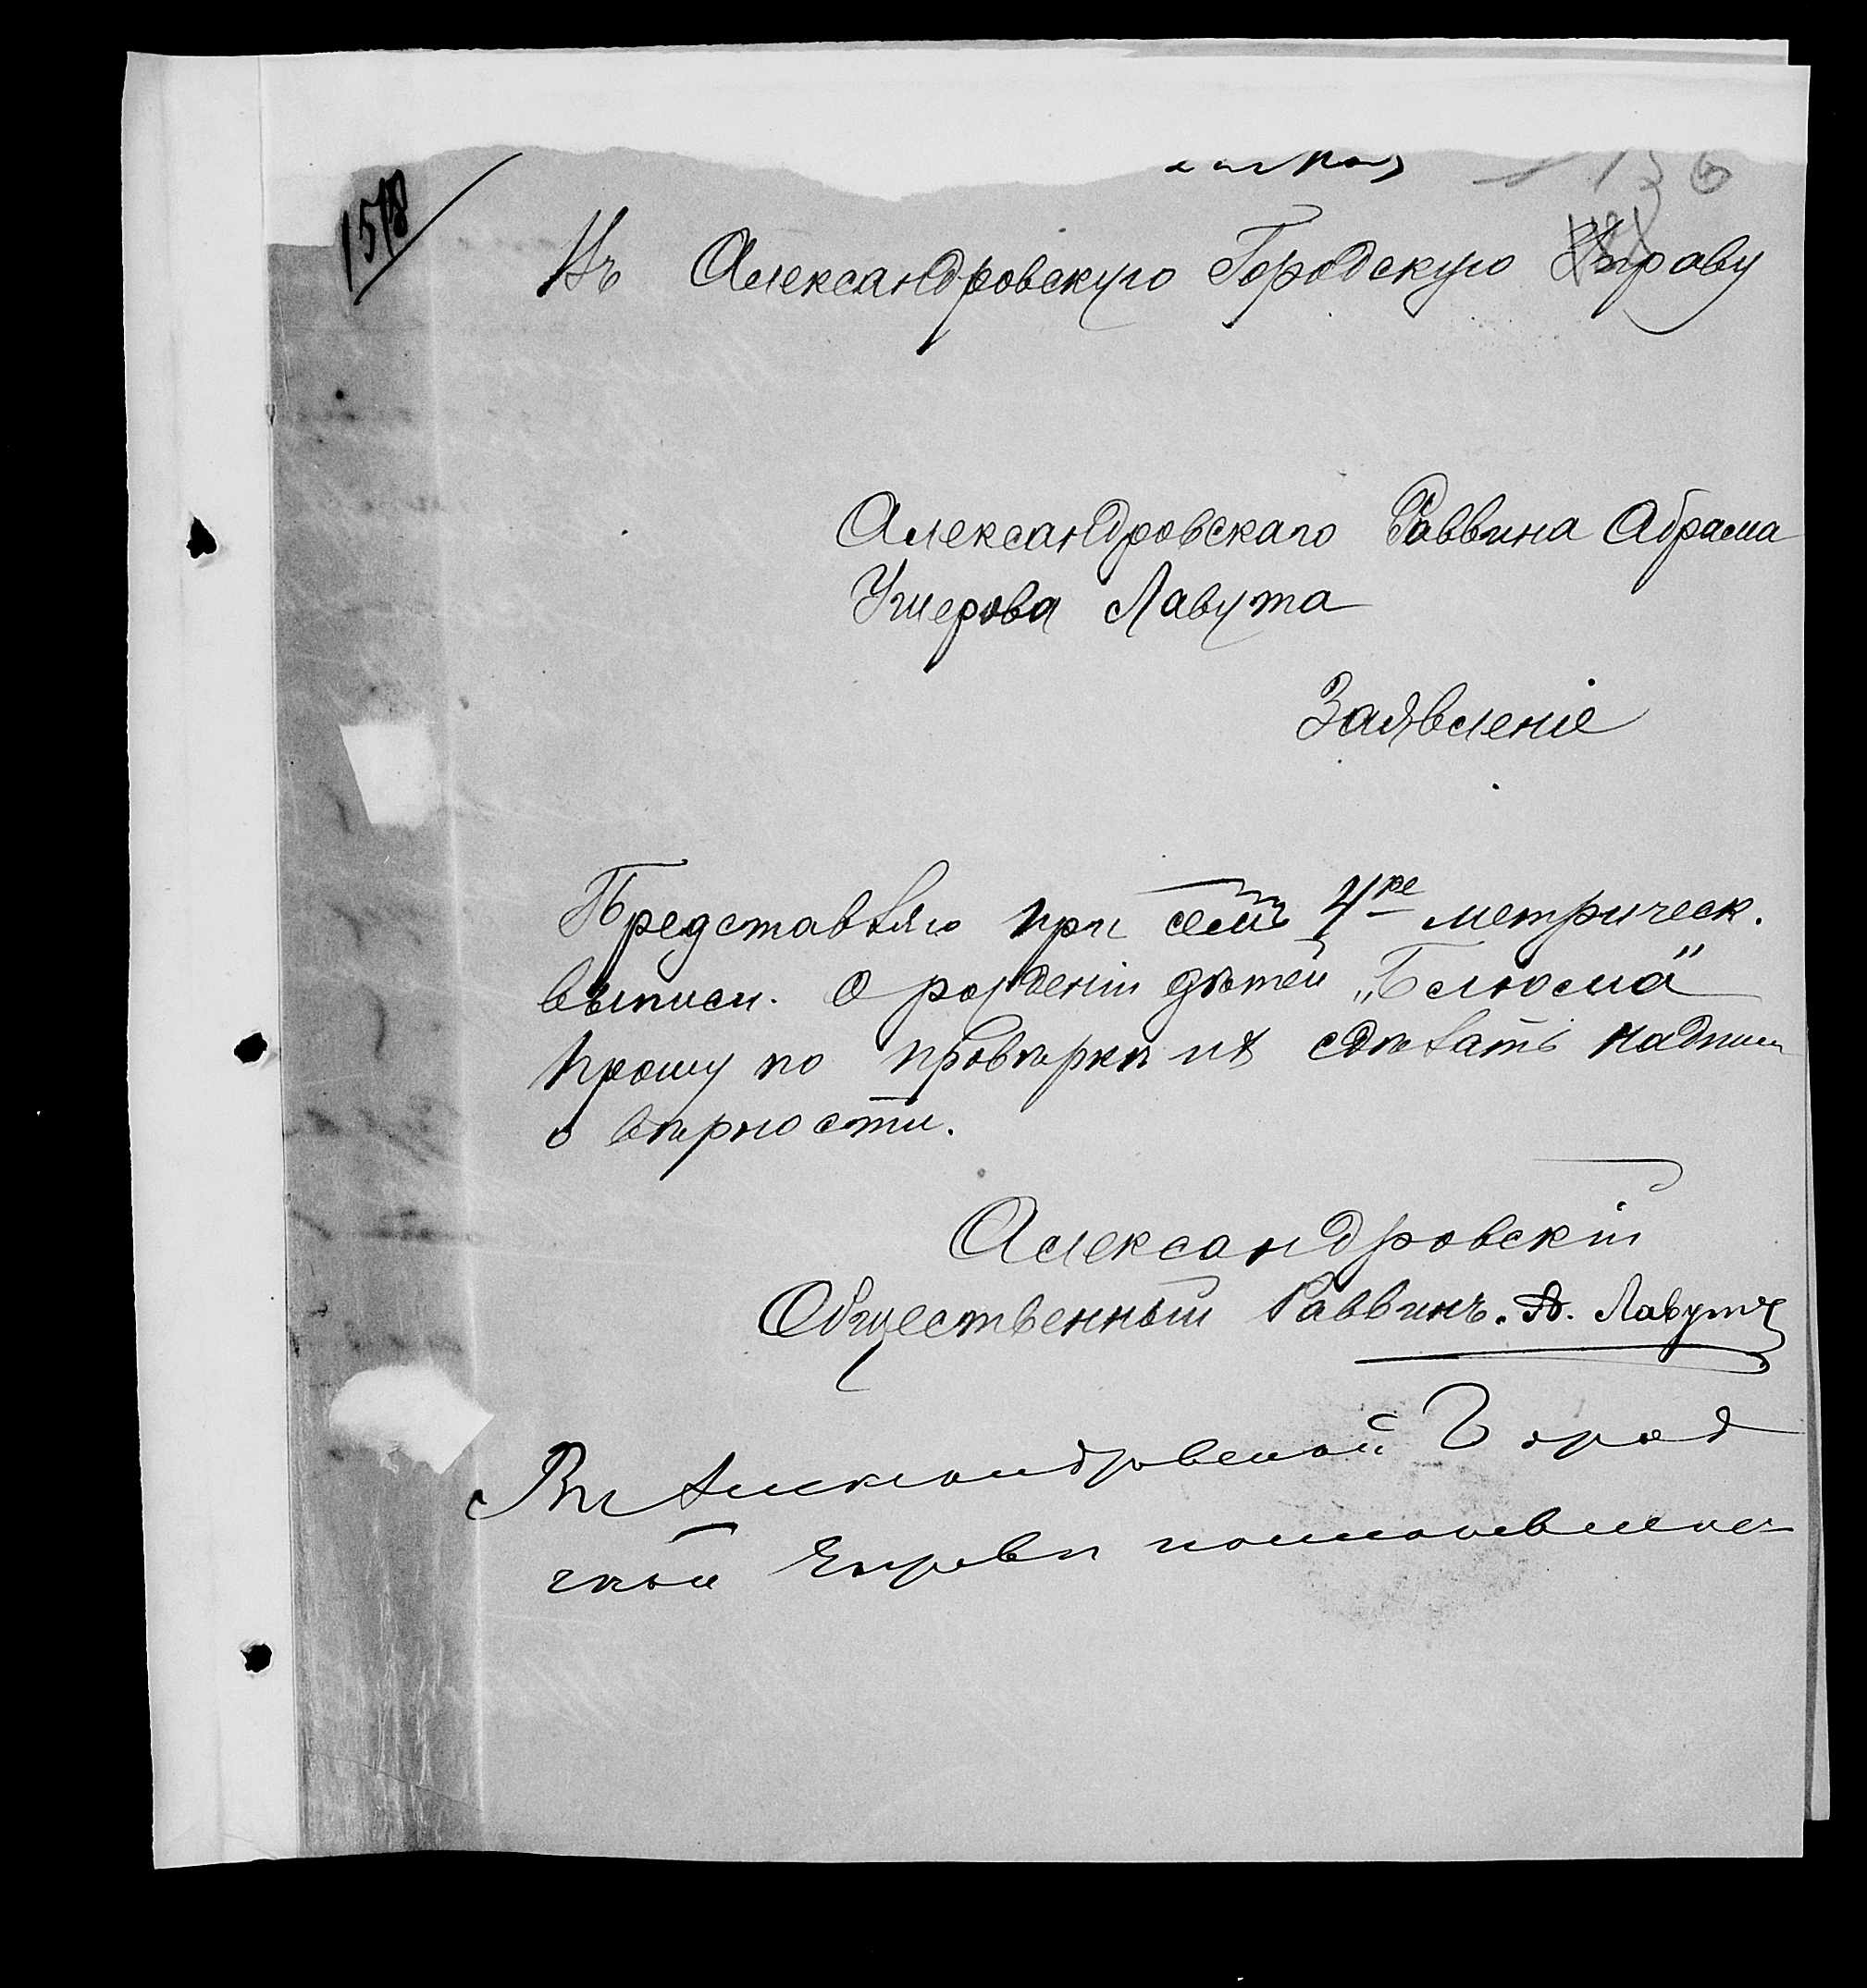 136
1518
Въ Александровскую Городскую Управу
Александровскаго Раввина Абрама
Ушерова Лавута
Заявленіе
Представляю при семъ 4ре метрическ.
выписи. о рожденіи дѣтей „Белюсма"
прошу по провѣркѣ ихъ сдѣлать надписи
о вѣрности.
Александровскій
Общественный Раввинъ. А. Лавутъ
Въ Александровской Город
ской Управѣ